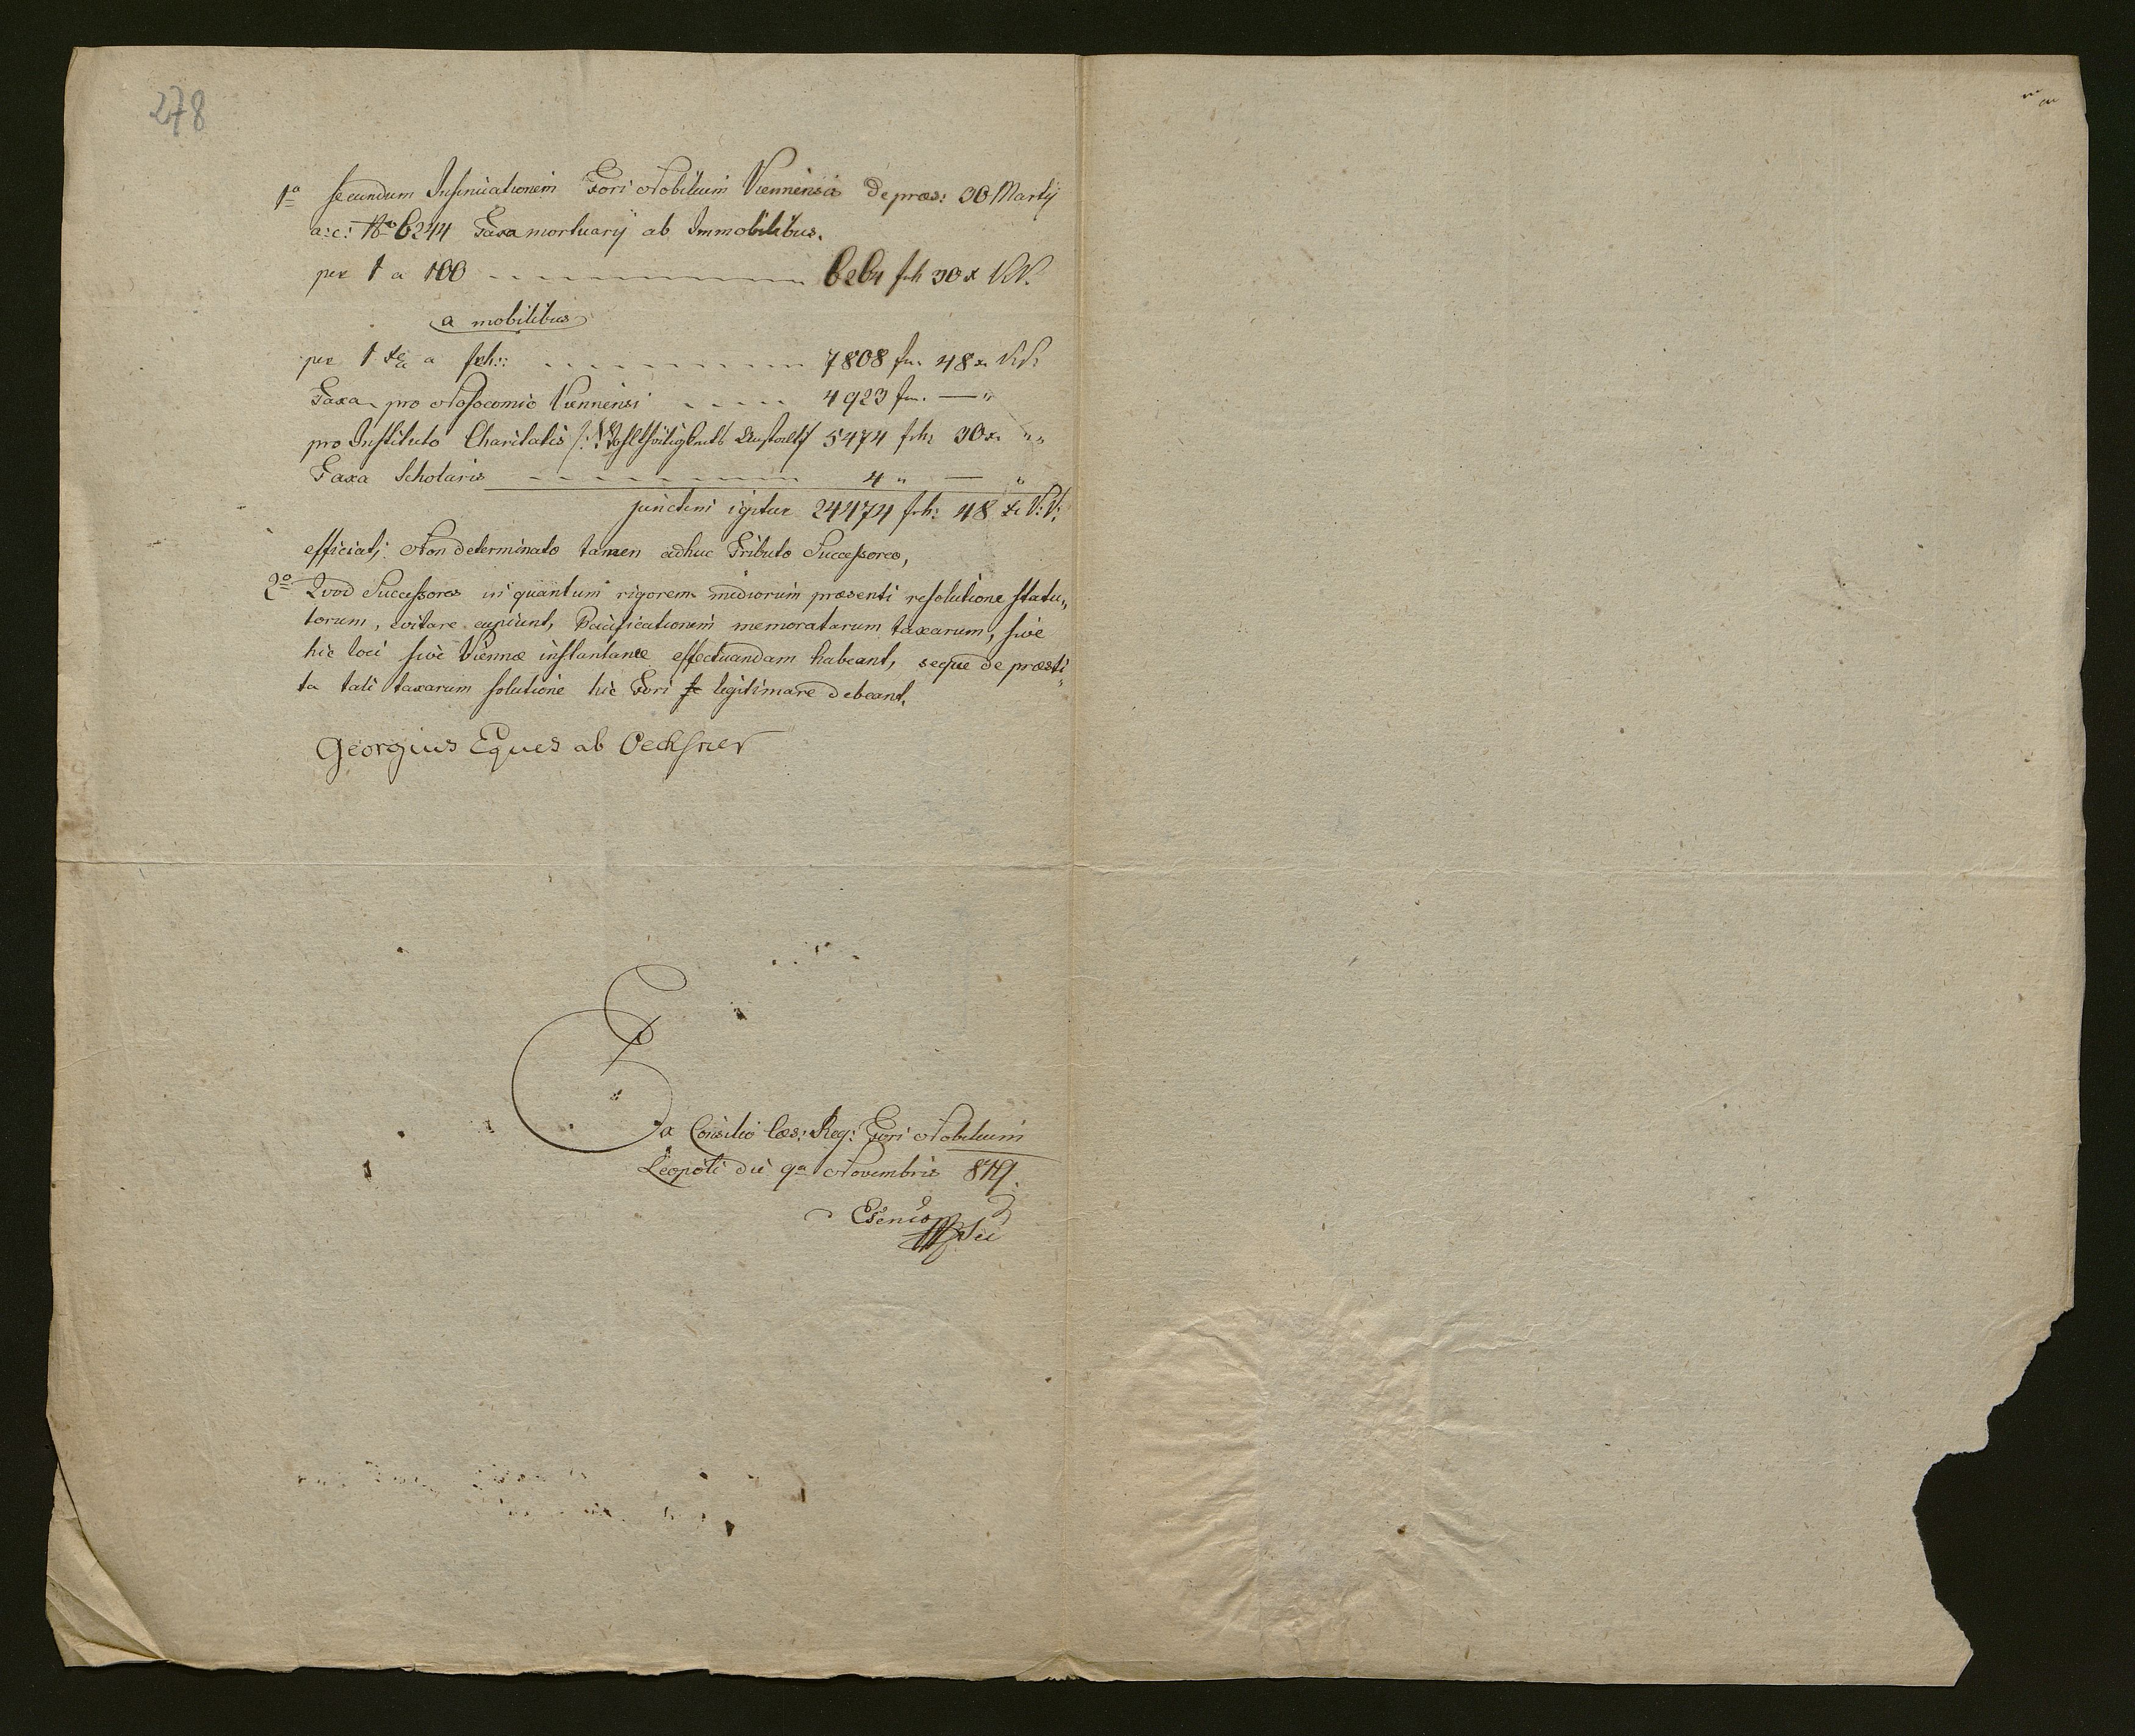 278
1a secundum Insinuationem Fori Nobilium Viennensis de præs: 30 Martij
a: c: No 6244 Taxa mortuarij ab Immobilibus.
per 1 a 100 6264 frh 30 x VV.
a mobilibus
per 1 xr a frh: 7808 fr. 48 x VV.
Taxa pro Nosocomio Viennensi 4923 fr. — "
pro Instituto Charitatis /: Wohlthätigkeits Anstalt :/ 5474 frh 30 x. ""
Taxa Scholaris 4 " — "
junctim igitur 24474 frh: 48 xr V: V:
efficiat; Non determinato tamen adhuc Tributo Successores,
2o Quod Successores in quantum rigorem mediorum præsenti resolutione statu„
torum, evitare cupiunt, Pacificationem memoratarum taxarum, sive
hic loci sive Viennæ instantanee effectuandam habeant, seque de præsti„
ta tali taxarum solutione hic Fori se legitimare debeant.
Georgius Eques ab Oechsner
Ex Consilio Cæs: Reg: Fori Nobilium
Leopoli die 9a Novembris 819.